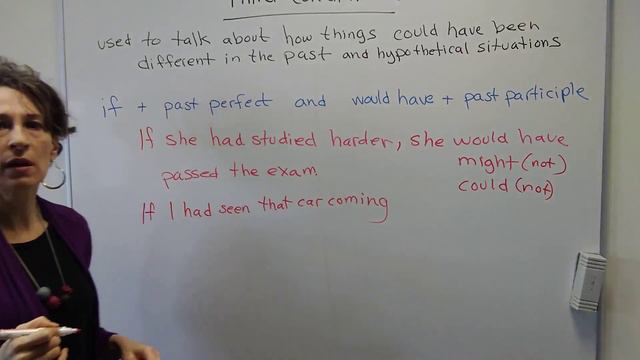 used to talk about how things could have been
different in the past and hypothetical situations
if + past perfect and would have + past participle
If she had studied harder, she would have
might (not)
passed the exam.
could (not)
If I had seen that car coming